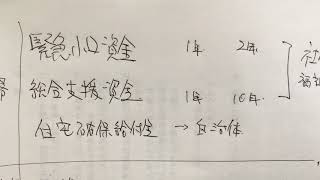 緊急小口資金 1年 2年 社
総合支援資金 1年 10年 福祉
住宅確保給付金 → 自治体